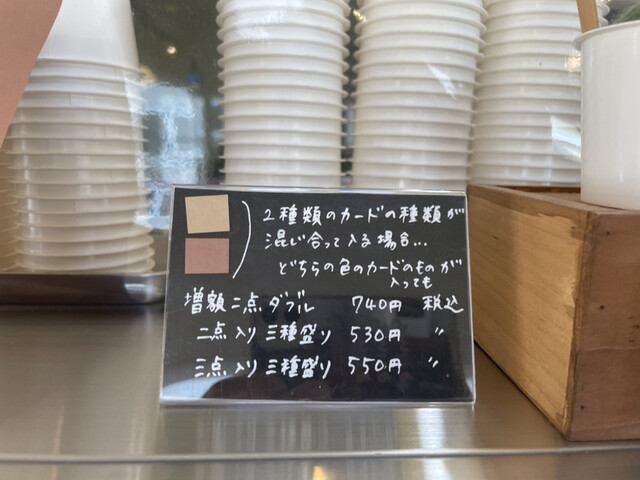 2種類のカードの種類が
混じ合って入る場合…
どちらの色のカードのものが
入っても
増額二点ダブル 740円 税込
二点入り三種盛り 530円 〃
三点入り三種盛り 550円 〃